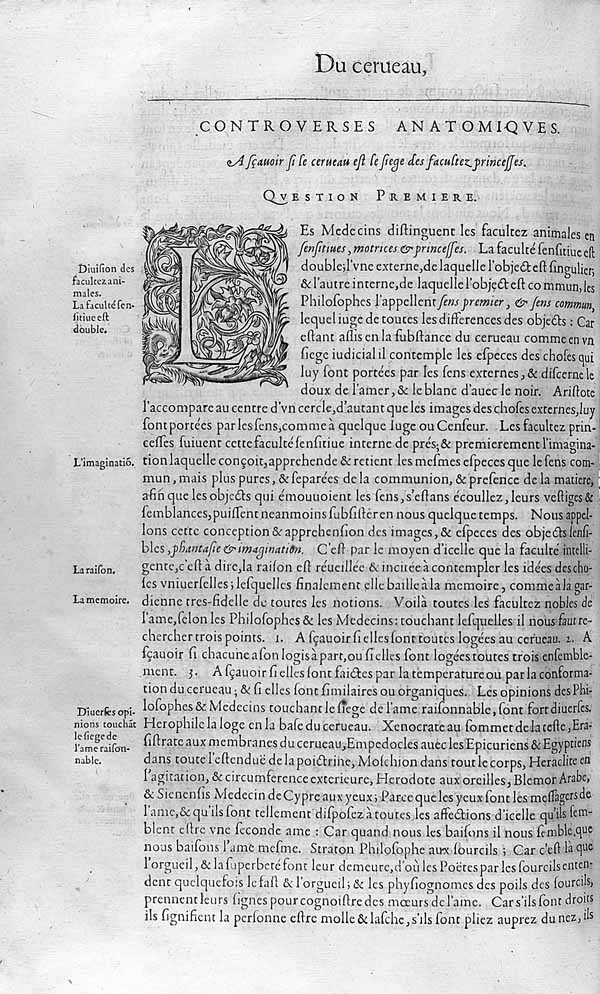 Du cerueau,
CONTROVERSES ANATOMIQVES.
A sçauoir si le cerueau est le siege des facultez princesses.
QVESTION PREMIERE.
Diuision des
facultez ani-
males.
La faculté sen-
sitiue est
double.
LEs Medecins distinguent les facultez animales en
sensitiues, motrices & princesses. La faculté sensitiue est
double; l'vne externe, de laquelle l'object est singulier,
& l'autre interne, de laquelle l'object est commun, les
Philosophes l'appellent sens premier, & sens commun,
lequel iuge de toutes les differences des objects : Car
estant assis en la substance du cerueau comme en vn
siege iudicial il contemple les especes des choses qui
luy sont portées par les sens externes, & discerne le
doux de l'amer, & le blanc d'auec le noir. Aristote
l'accompare au centre d'vn cercle, d'autant que les images des choses externes, luy
sont portées par les sens, comme à quelque Iuge ou Censeur. Les facultez prin-
cesses suiuent cette faculté sensitiue interne de prés; & premierement l'imagina-
L'imaginatiō.
tion laquelle conçoit, apprehende & retient les mesmes especes que le sens com-
mun, mais plus pures, & separées de la communion, & presence de la matiere,
afin que les objects qui émouuoient les sens, s'estans écoullez, leurs vestiges &
semblances, puissent neanmoins subsister en nous quelque temps. Nous appel-
lons cette conception & apprehension des images, & especes des objects sensi-
bles, phantasie & imagination. C'est par le moyen d'icelle que la faculté intelli-
La raison.
gente, c'est à dire, la raison est réueillée & incitée à contempler les idées des cho-
ses vniuerselles; lesquelles finalement elle baille à la memoire, comme à la gar-
La memoire.
dienne tres-fidelle de toutes les notions. Voilà toutes les facultez nobles de
l'ame, selon les Philosophes & les Medecins: touchant lesquelles il nous faut re-
chercher trois points. 1. A sçauoir si elles sont toutes logées au cerueau. 2. A
sçauoir si chacune a son logis à part, ou si elles sont logées toutes trois ensemble-
ment. 3. A sçauoir si elles sont faictes par la temperature ou par la conforma-
tion du cerueau; & si elles sont similaires ou organiques. Les opinions des Phi-
Diuerses opi-
nions touchāt
le siege de
l'ame raison-
nable.
losophes & Medecins touchant le siege de l'ame raisonnable, sont fort diuerses.
Herophile la loge en la base du cerueau. Xenocrate au sommet de la teste, Era-
sistrate aux membranes du cerueau, Empedocles auec les Epicuriens & Egyptiens
dans toute l'estenduë de la poictrine, Moschion dans tout le corps, Heraclite en
l'agitation, & circumference exterieure, Herodote aux oreilles, Blemor Arabe,
& Sienensis Medecin de Cypre aux yeux; Parce que les yeux sont les messagers de
l'ame, & qu'ils sont tellement disposez à toutes les affections d'icelle qu'ils sem-
blent estre vne seconde ame : Car quand nous les baisons il nous semble, que
nous baisons l'ame mesme. Straton Philosophe aux sourcils ; Car c'est là que
l'orgueil, & la superbeté font leur demeure, d'où les Poëtes par les sourcils enten-
dent quelquefois le fast & l'orgueil; & les physiognomes des poils des sourcils,
prennent leurs signes pour cognoistre des mœurs de l'ame. Car s'ils sont droits
ils signifient la personne estre molle & lasche, s'ils sont pliez auprez du nez, ils